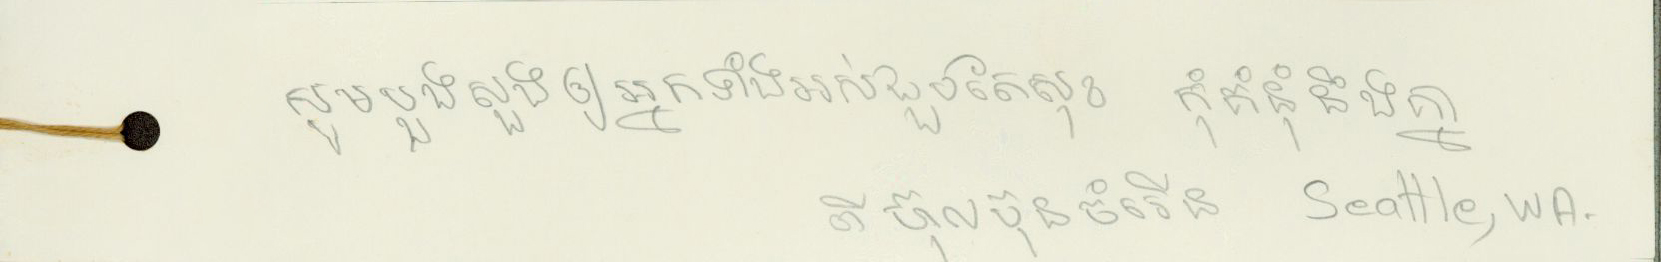 សូមបួងសួងឲ្យអ្នកទាំងអស់ជួបតែសុខ កុំគំនុំនឹងគ្នា
ពី ប៊ុនចំរើន Seattle, WA.